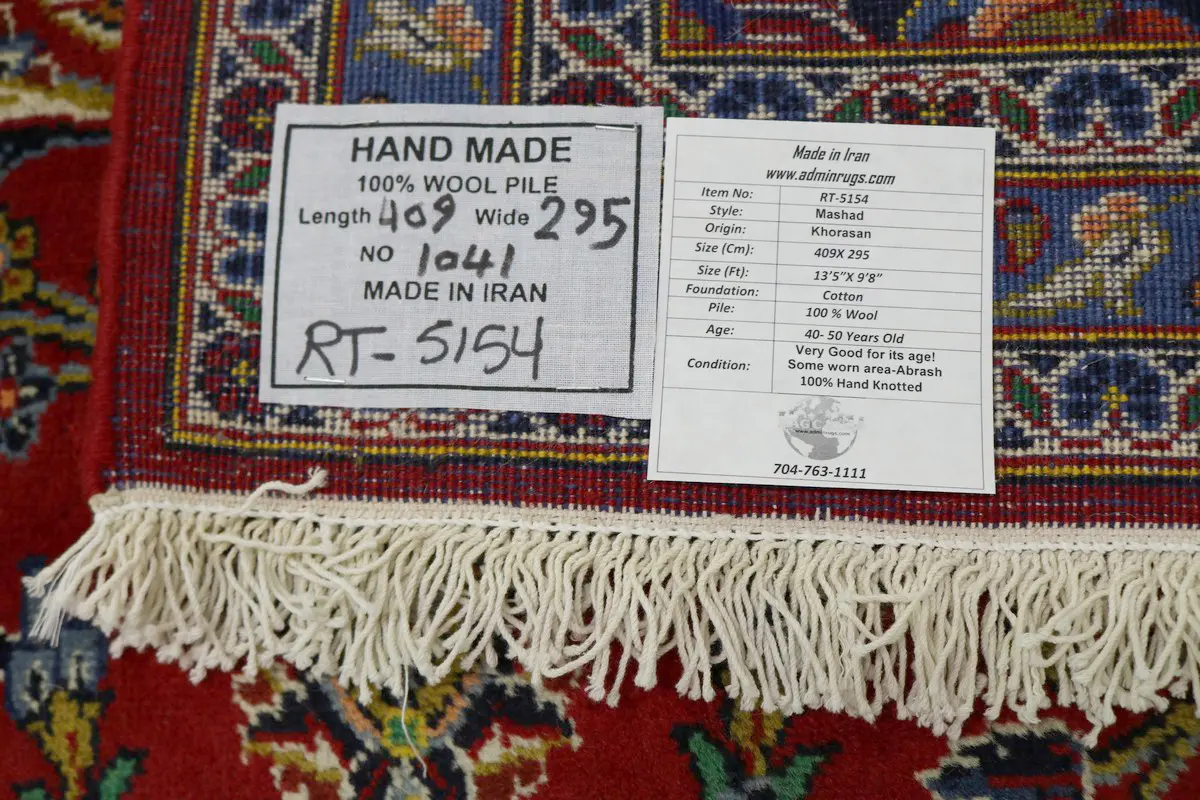 HAND MADE
100% WOOL PILE
Length 409 Wide 295
NO 1041
MADE IN IRAN
RT-5154
Made in Iran
www.adminrugs.com
Item No: RT-5154
Style: Mashad
Origin: Khorasan
Size (Cm): 409X 295
Size (Ft): 13'5"X 9'8"
Foundation: Cotton
Pile: 100 % Wool
Age: 40- 50 Years Old
Condition: Very Good for its age!
Some worn area-Abrash
100% Hand Knotted
AGC
www.adminrugs.com
704-763-1111